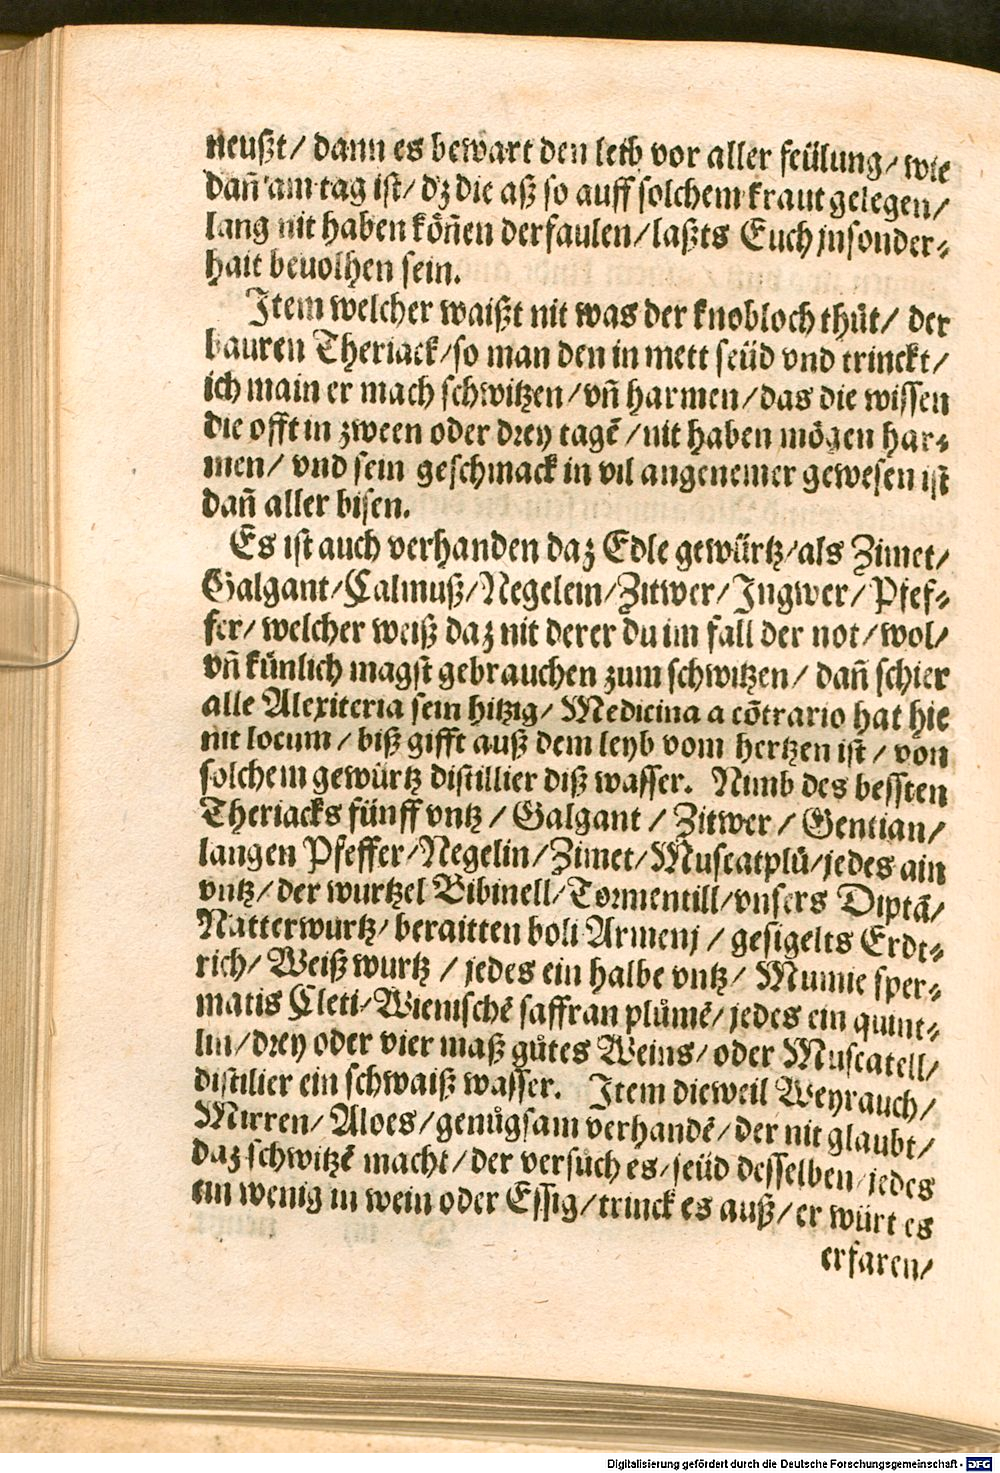 neußt/ dann es bewart den leib vor aller feülung/ wie
dañ am tag ist/ dz die aß so auff solchem kraut gelegen/
lang nit haben köñen derfaulen/ laßts Euch jnsonder⸗
hait beuolhen sein.
Jtem welcher waißt nit was der knobloch thůt/ der
bauren Theriack/ so man den in mett seüd vnd trinckt/
ich main er mach schwitzen/ vñ harmen/ das die wissen
die offt in zween oder drey tagẽ/ nit haben mögen har⸗
men/ vnd sein geschmack in vil angenemer gewesen ist
dañ aller bisen.
Es ist auch verhanden daz Edle gewürtz/ als Zimet/
Galgant/ Calmuß/ Negelein/ Zitwer/ Jngwer/ Pfef⸗
fer/ welcher weiß daz nit derer du im fall der not/ wol/
vñ künlich magst gebrauchen zum schwitzen/ dañ schier
alle Alexiteria sein hitzig/ Medicina a cõtrario hat hie
nit locum/ biß gifft auß dem leyb vom hertzen ist/ von
solchem gewürtz distillier diß wasser. Nimb des bessten
Theriacks fünff vntz/ Galgant/ Zitwer/ Gentian/
langen Pfeffer/ Negelin/ Zimet/ Muscatplů/ jedes ain
vntz/ der wurtzel Bibinell/ Tormentill/ vnsers Diptã/
Natterwurtz/ beraitten boli Armenj/ gesigelts Erdt⸗
rich/ Weiß wurtz/ jedes ein halbe vntz/ Mumie sper⸗
matis Cleti/ Wienischẽ saffran plůmẽ/ jedes ein quint⸗
lin/ drey oder vier maß gůtes Weins/ oder Muscatell/
distilier ein schwaiß wasser. Jtem dieweil Weyrauch/
Mirren/ Aloes/ genůgsam verhandẽ/ der nit glaubt/
daz schwitzẽ macht/ der versůch es/ seüd desselben jedes
ein wenig in wein oder Essig/ trinck es auß/ er würt es
erfaren/
Digitalisierung gefördert durch die Deutsche Forschungsgemeinschaft - DFG